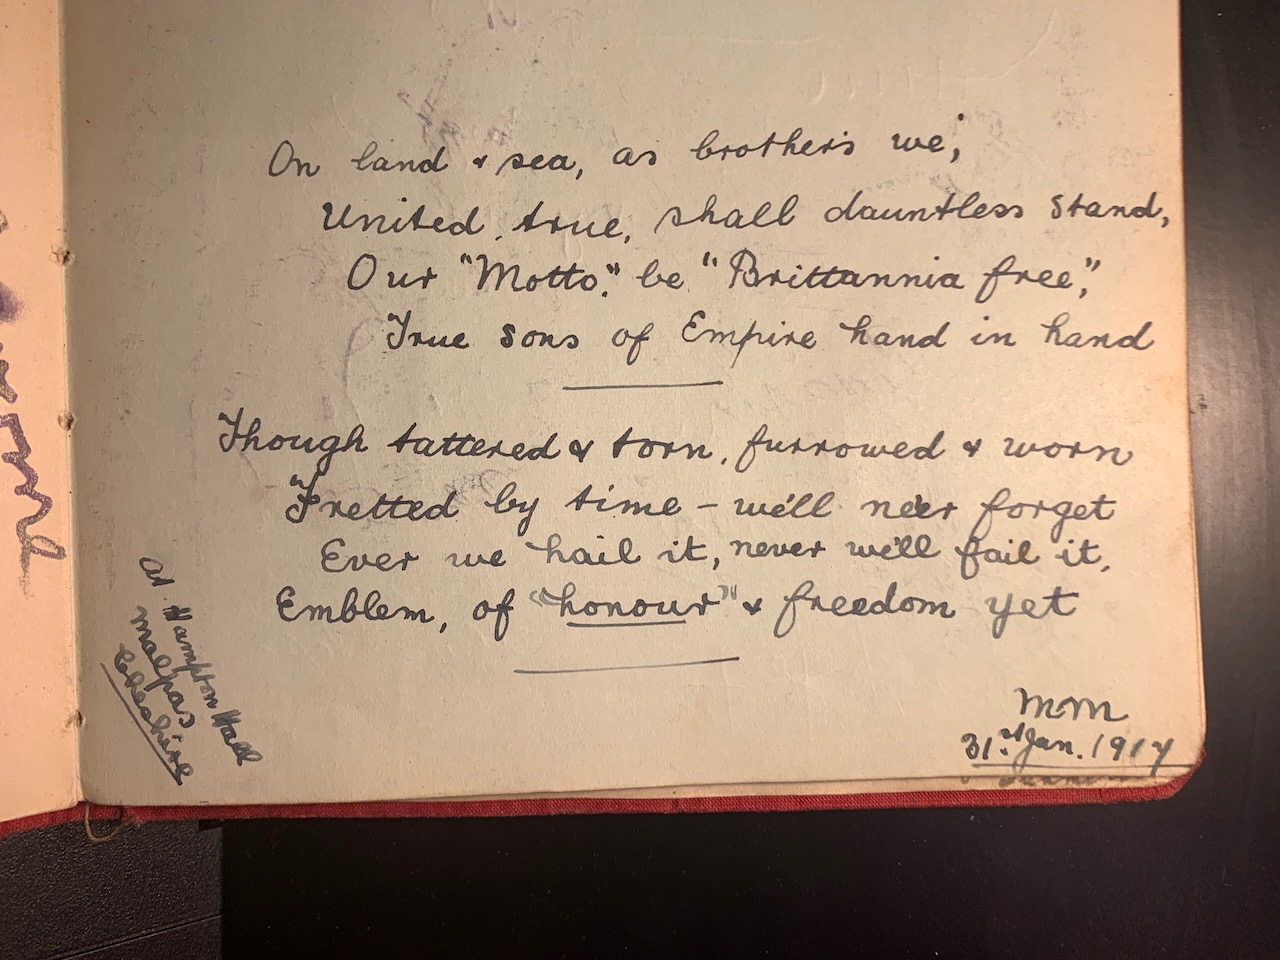 On land & sea, as brothers we,
United, true, shall dauntless stand,
Our "Motto," be "Brittannia free,"
True sons of Empire hand in hand
Though tattered & torn, furrowed & worn
Fretted by time - we'll ne'er forget
Ever we hail it, never we'll fail it,
Emblem, of "honour" & freedom yet
At. Hampton Hall
Malpas
Cheshire
MM
31st Jan. 1917